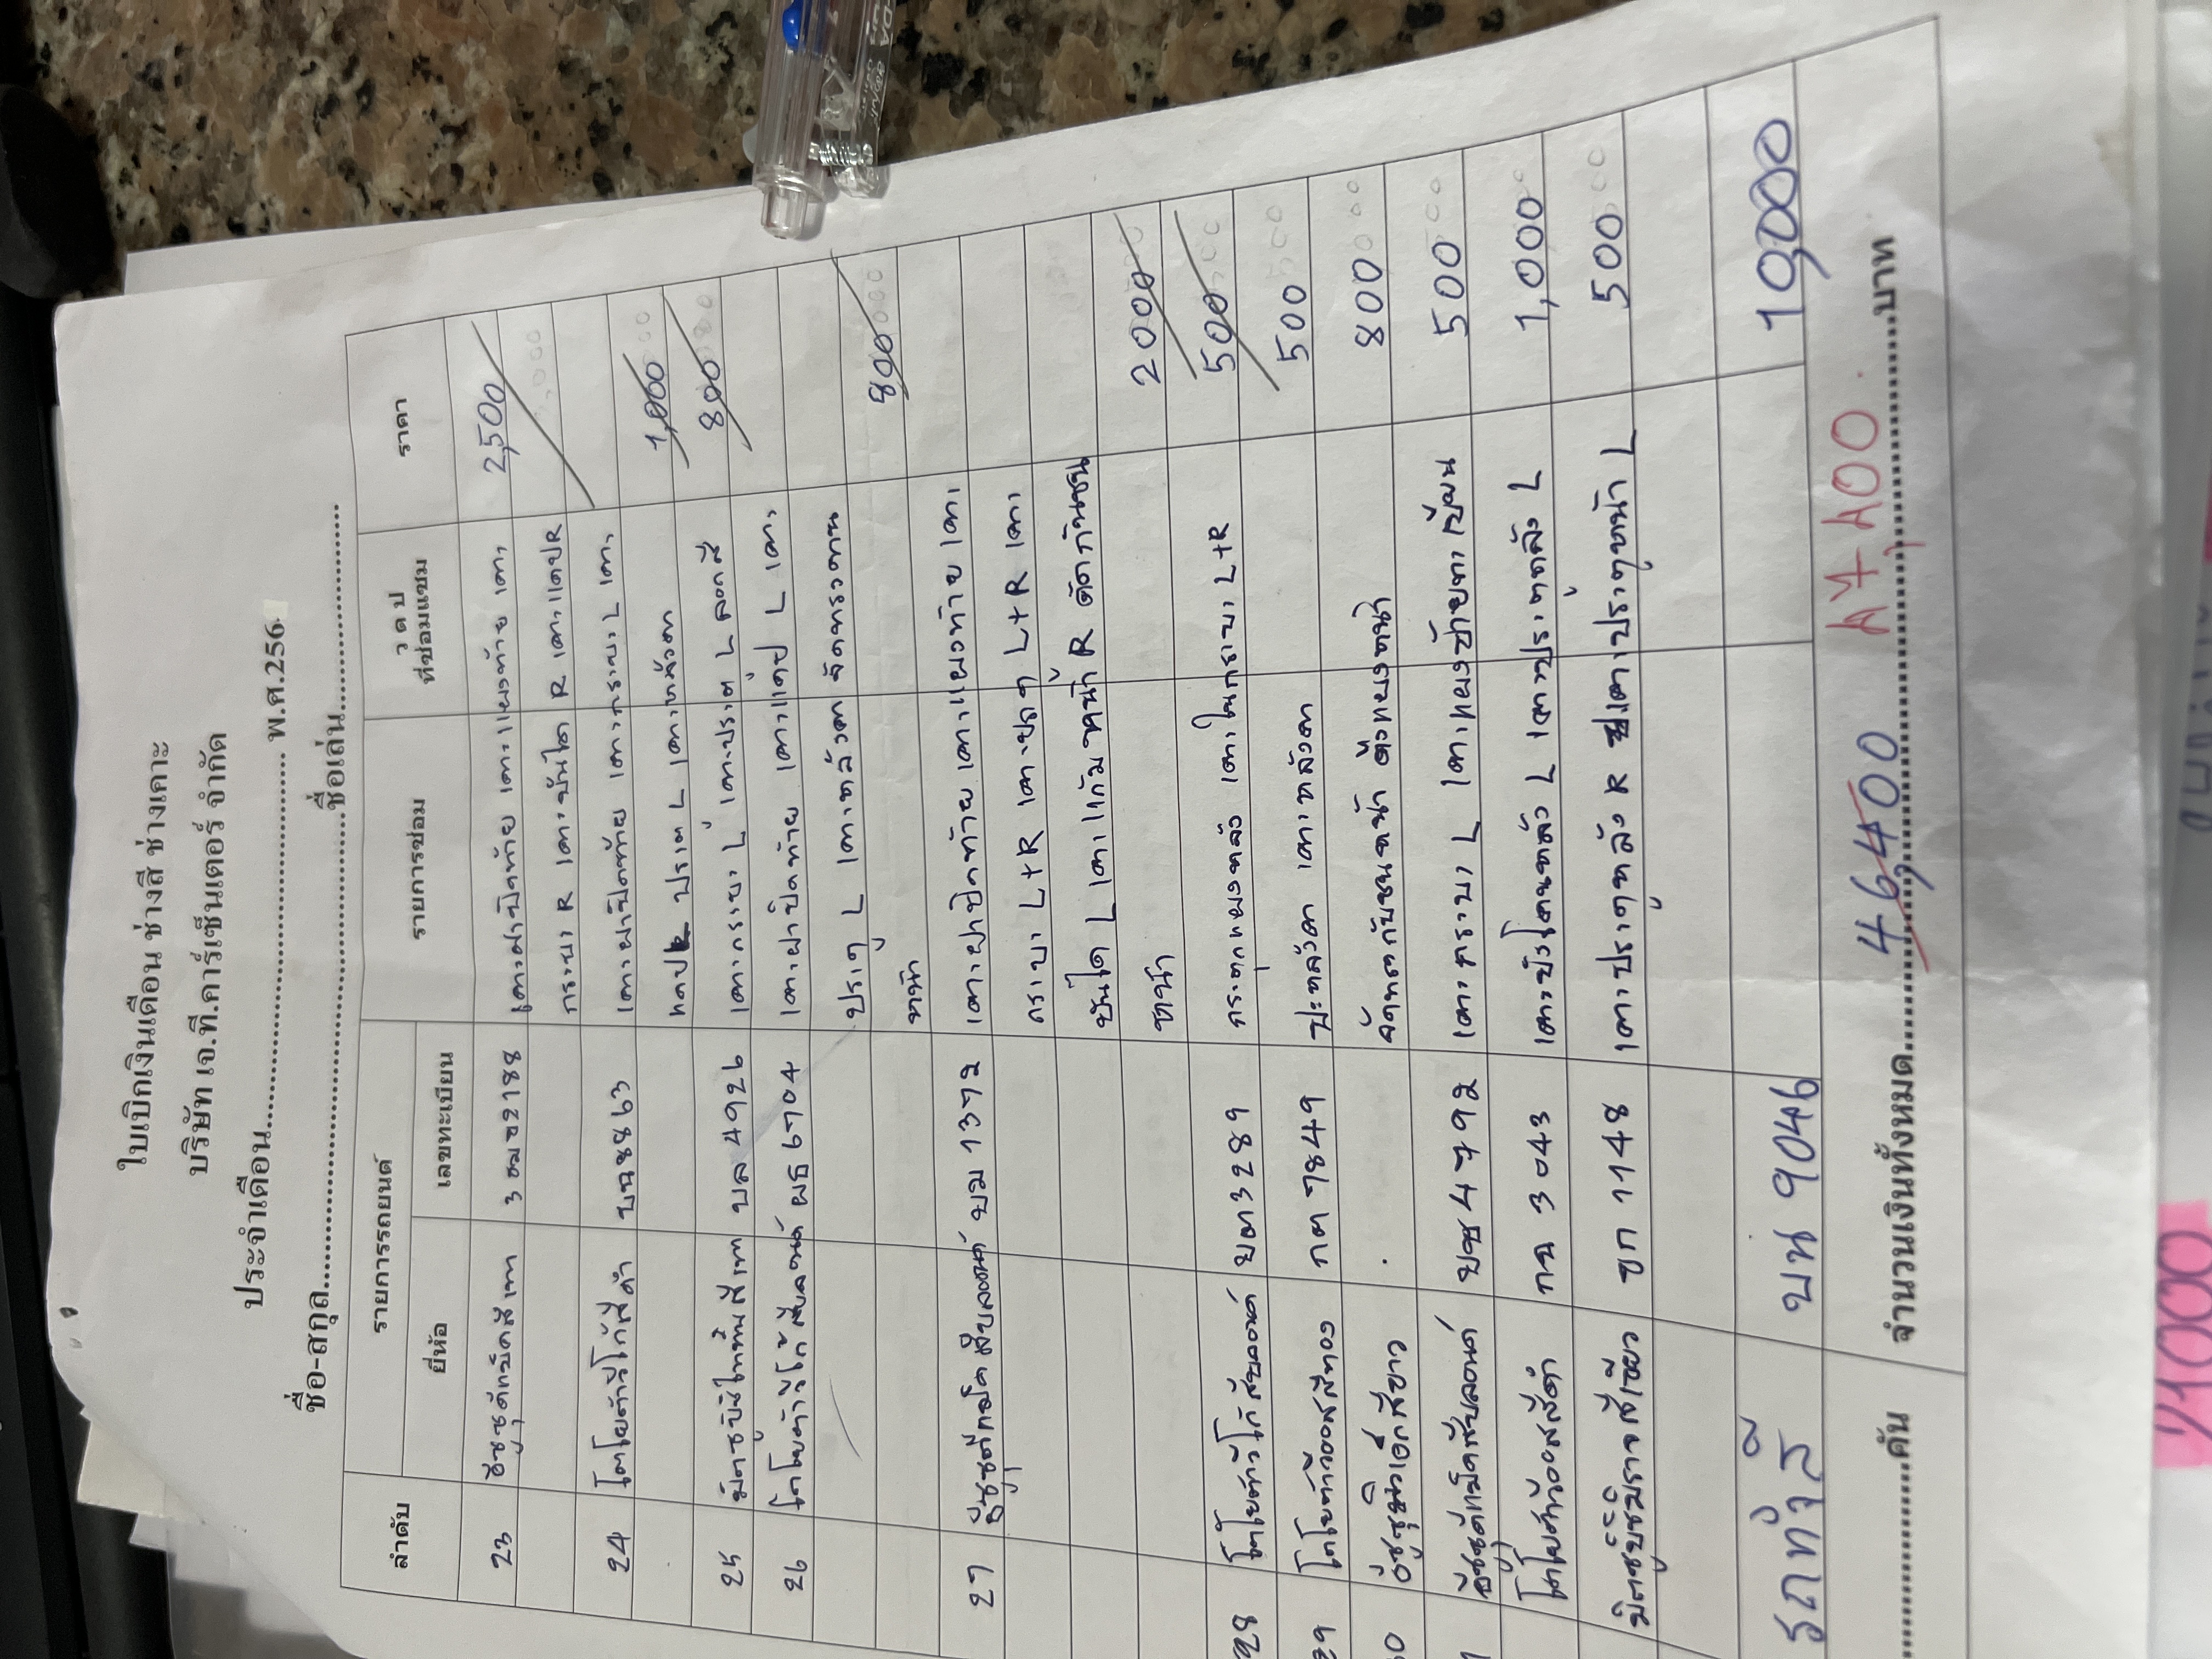 ใบเบิกเงินเดือน ช่างสี ช่างเคาะ
บริษัท เจ.ที.คาร์เซ็นเตอร์ จำกัด
ประจำเดือน........................ พ.ศ.256
ชื่อ-สกุล........................ชื่อเล่น........................
ลำดับ รายการรถยนต์ รายการซ่อม ว ด ป ที่ซ่อมแซม ราคา
ยี่ห้อ เลขทะเบียน
23 อีซูซุ 3ฒฆ2188 เคาะฝาปิดท้าย เคาะแผงท้าย เคาะ 2,500
กระบะ R เคาะบันได R เคาะ
24 โตโยต้าวีโก้สีดำ บน8863 เคาะฝาปิดท้าย เคาะกระบะ L เคาะ 1,000
ประตู L เคาะหลังคา
25 สีเทา บล 4926 เคาะกระบะ L เคาะประตู L ลอกสี 800
26 โตโยต้าวีโก้สีบลอนด์ ผธ 6704 เคาะฝาปิดท้าย เคาะแค้ป L เคาะ
ประตู L เคาะหลังคา 800
หน้า
27 สีบลอนด์ บม 1372 เคาะฝาปิดท้าย เคาะแผงท้าย เคาะ
กระบะ L+R เคาะ L+R เคาะ
บันได L เคาะแก้มหน้า R ดัดกันชน
หน้า 2000
28 โตโยต้าวีโก้สีบลอนด์ บต 3289 กระตุกแผงหลัง เคาะในกระบะ L+R 500
29 โตโยต้าวีออสสีทอง กต 7849 ปะหลังคา เคาะหลังคา 500
อีซูซุมิวเอ็กสีขาว กันชนหน้า ดึงแผงหน้า 800
สีบลอนด์ บช 4792 เคาะกระบะ L เคาะแผงซ้าย 500
โตโยต้าวีออสสีดำ กฉ 3043 เคาะบังโคลนหลัง L เคาะประตูหลัง L 1,000
มิตซูบิชิมิราจสีเขียว ขก 1148 เคาะประตูหลัง R เคาะประตูหน้า L 500
รถทำสี บน 9046 10,000
........คัน จำนวนเงินทั้งหมด........46,400........บาท